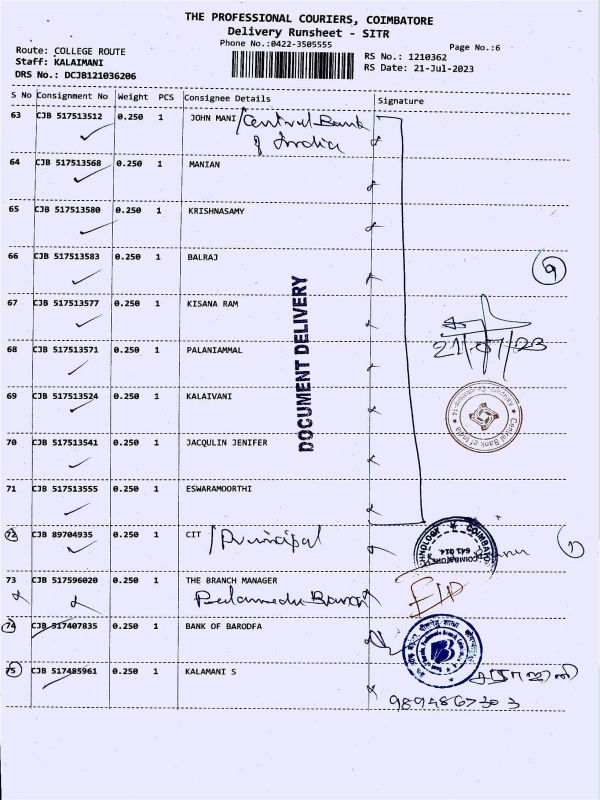 THE PROFESSIONAL COURIERS, COIMBATORE
Delivery Runsheet - SITR
Phone No.:0422-3505555
Page No.:6
Route: COLLEGE ROUTE
RS No.: 1210362
Staff: KALAIMANI
RS Date: 21-Jul-2023
DRS No.: DCJB121036206
S No Consignment No Weight PCS Consignee Details Signature
63 CJB 517513512 0.250 1 JOHN MANI / Central Bank
of India
64 CJB 517513568 0.250 1 MANIAN
65 CJB 517513580 0.250 1 KRISHNASAMY
66 CJB 517513583 0.250 1 BALRAJ
9
67 CJB 517513577 0.250 1 KISANA RAM
DOCUMENT DELIVERY
21/07/23
68 CJB 517513571 0.250 1 PALANIAMMAL
69 CJB 517513524 0.250 1 KALAIVANI
Central Bank of India
70 CJB 517513541 0.250 1 JACQULIN JENIFER
71 CJB 517513555 0.250 1 ESWARAMOORTHI
72 CJB 89704935 0.250 1 CIT / Principal
1
COIMBATORE
641 014
73 CJB 517596020 0.250 1 THE BRANCH MANAGER
Peelamedu Branch
74 CJB 517407835 0.250 1 BANK OF BARODFA
75 CJB 517485961 0.250 1 KALAMANI S
9894867303